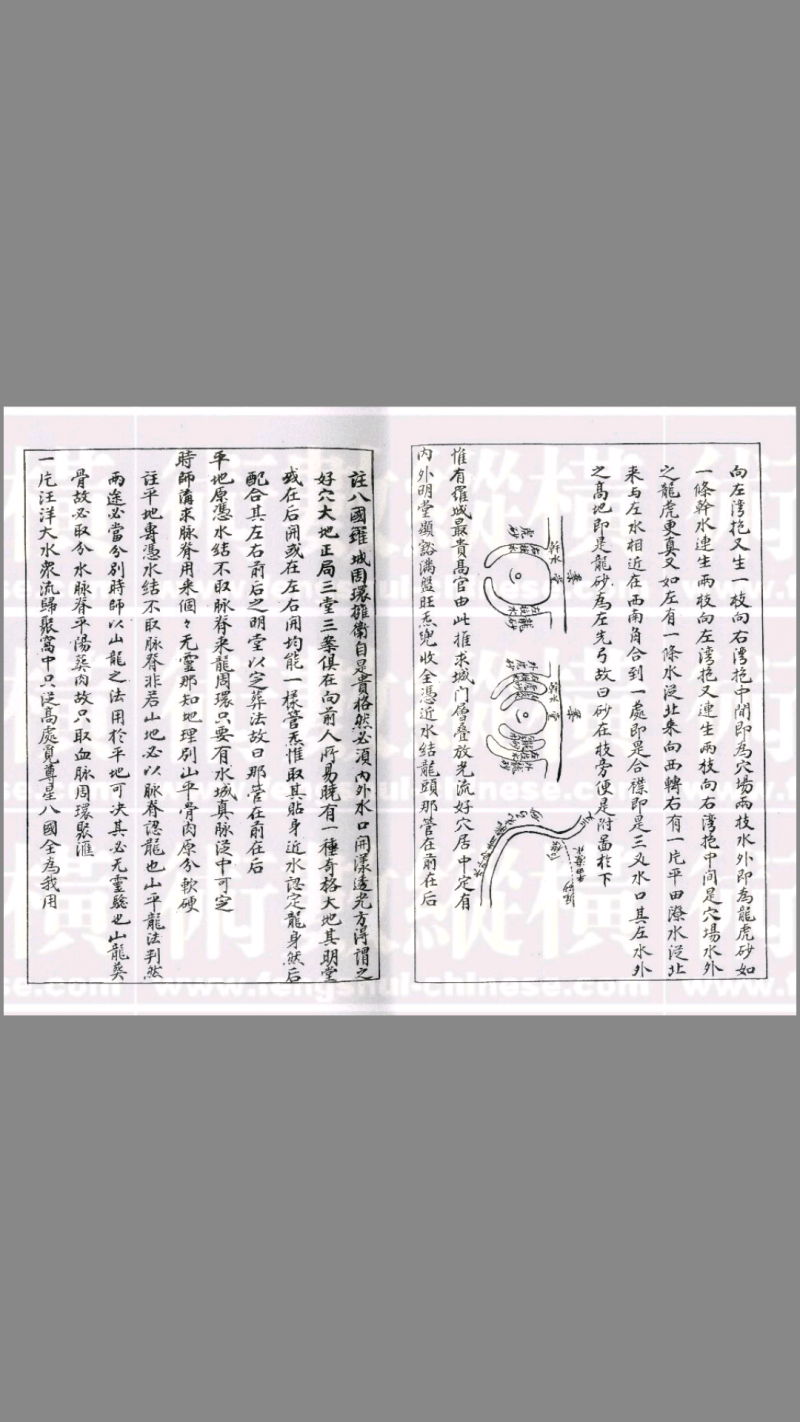 向左湾抱又生一枝向右湾抱中間即為穴場兩枝水外即為龍虎砂如
一條幹水連生兩枝向左湾抱又連生兩枝向右湾抱中間是穴場水外
之龍虎更真又如左有一條水從北来向西轉右有一片平田潦水從北
来与左水相近在西南角合到一處即是合襟即是三义水口其左水外
之髙地即是龍砂為左先弓故曰砂在枝旁便是附畵於下
案
堂
幹水
龍砂
虎砂
案
堂
幹水
惟有羅城最貴髙官由此推求城门層叠放光流好穴居中定有
内外明堂顯豁滿盤旺炁兜收全憑近水結龍頭那管在前在后
註八國羅城周環擁衛自是貴格然必須内外水口開漾透光方淂謂之
好穴大地正局三堂三案俱在向前人所易暁有一種奇格大地其明堂
或在后開或在左右開均能一樣管炁惟取其貼身近水認定龍身然后
配合其左右前后之明堂以定葬法故曰那管在前在后
平地原憑水結不取脉脊来龍周環只要有水城真脉從中可定
時師講求脉脊用来個々无靈那知地理別山平骨肉原分軟硬
註平地專憑水結不取脉脊非若山地必以脉脊認龍也山平龍法判然
兩途必當分別時師以山龍之法用於平地可决其必无靈驗也山龍葬
骨故必取分水脉脊平陽葬肉故只取血脉周環聚滙
一片汪洋大水衆流歸聚窩中只從髙處覓尊星八國全為我用
橫
術數縱橫
www.fengshui-chinese.com